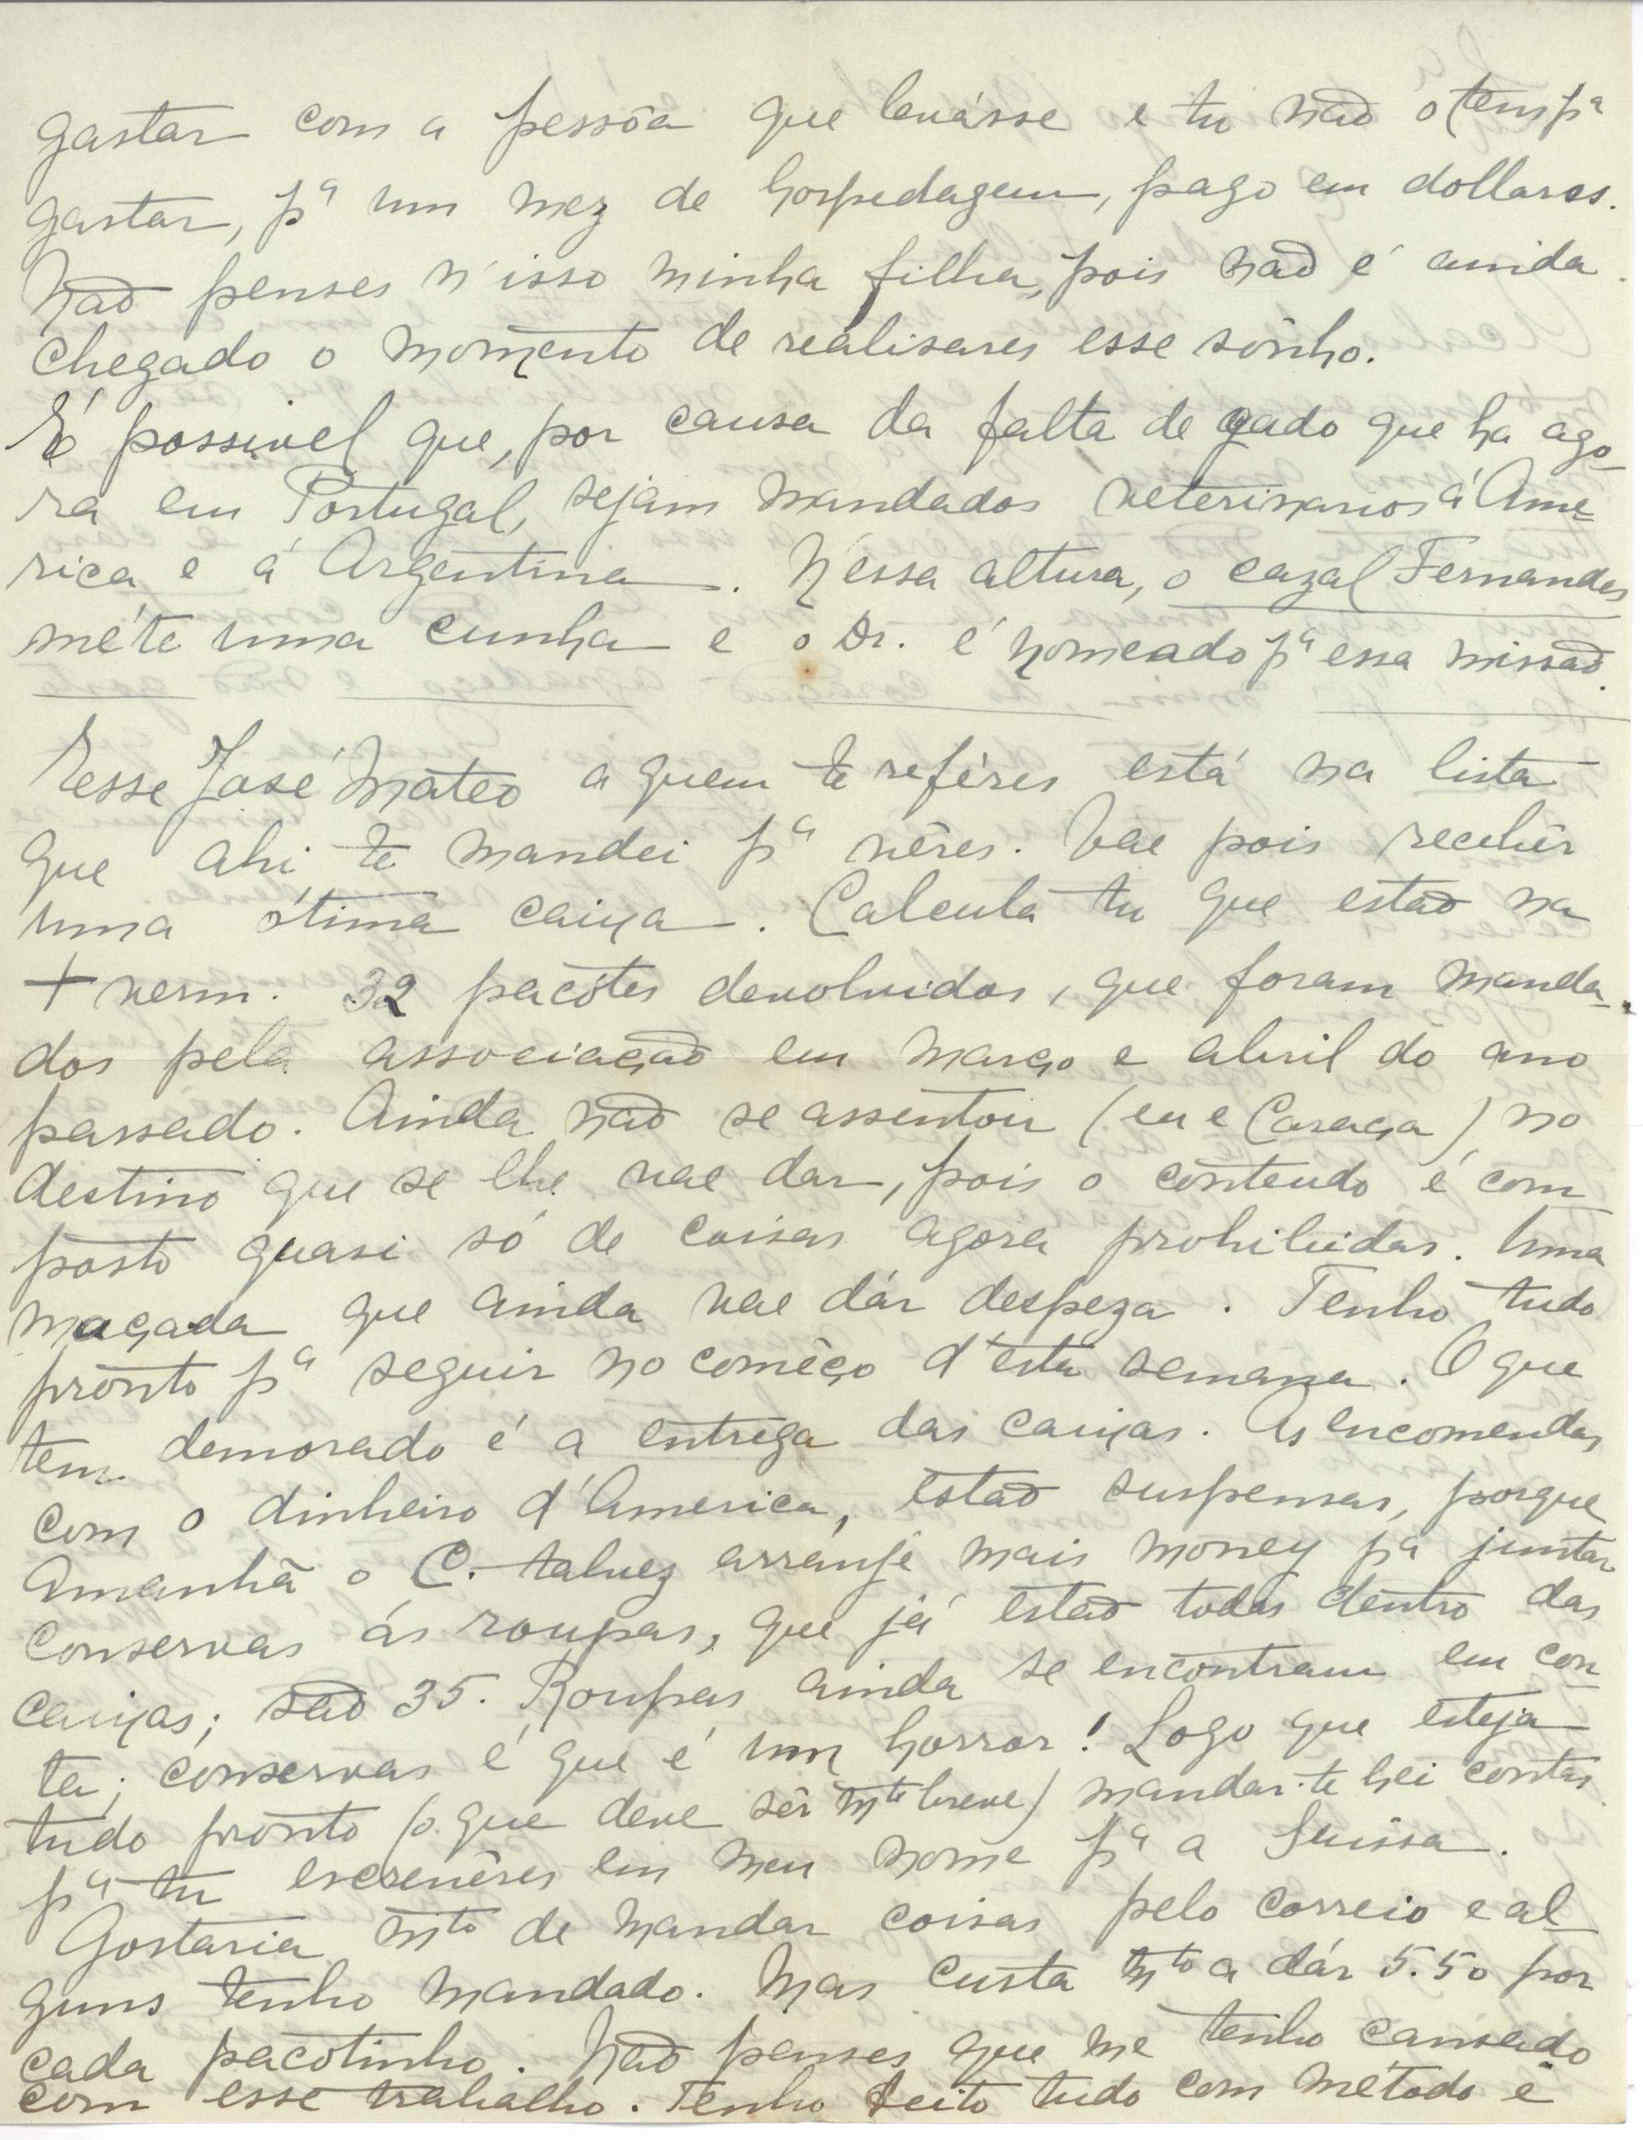 gastar com a pessôa que levásse e tu não o tens pª
gastar, pª um mez de hospedagem, pago em dollares.
Não penses n'isso minha filha, pois não é ainda
chegado o momento de realisares esse sônho.
É possivel que, por causa da falta de gado que ha ago-
ra em Portugal, sejam mandados veterinarios á Ame-
rica e á Argentina. N'essa altura, o cazal Fernandes
méte uma cunha e o Dr. é nomeado pª essa missão.
Esse José Mateo a quem te reféres está na lista
que ahi te mandei pª vêres. Vae pois recebêr
uma ótima caixa. Calcula tu que estão na
+ verm. 32 pacótes devolvidos, que foram manda-
dos pela associação em março e abril do ano
passado. Ainda não se assentou (eu e Caraça) no
destino que se lhe vae dar, pois o conteudo é com
posto quasi só de coisas agora prohibidas. Uma
maçada que ainda vae dár despeza. Tenho tudo
pronto pª seguir no comêço d'esta semana. O que
tem demorado é a entrega das caixas. As encomendas
com o dinheiro d'America, estão suspensas, porque
amanhã o C. talvez arranje mais money pª juntar
conservas ás roupas, que já estão todas dentro das
caixas; são 35. Roupas ainda se encontram em con-
ta; conservas é que é um horror! Logo que esteja
tudo pronto (o que deve sêr mto breve) mandar-te hei contas
pª tu escrevêres em meu nome pª a Suissa.
Gostaria mto de mandar coisas pelo correio e al-
guns tenho mandado. Mas custa mto a dár 5.50 por
cada pacotinho. Não penses que me tenho cansado
com esse trabalho. Tenho feito tudo com método e